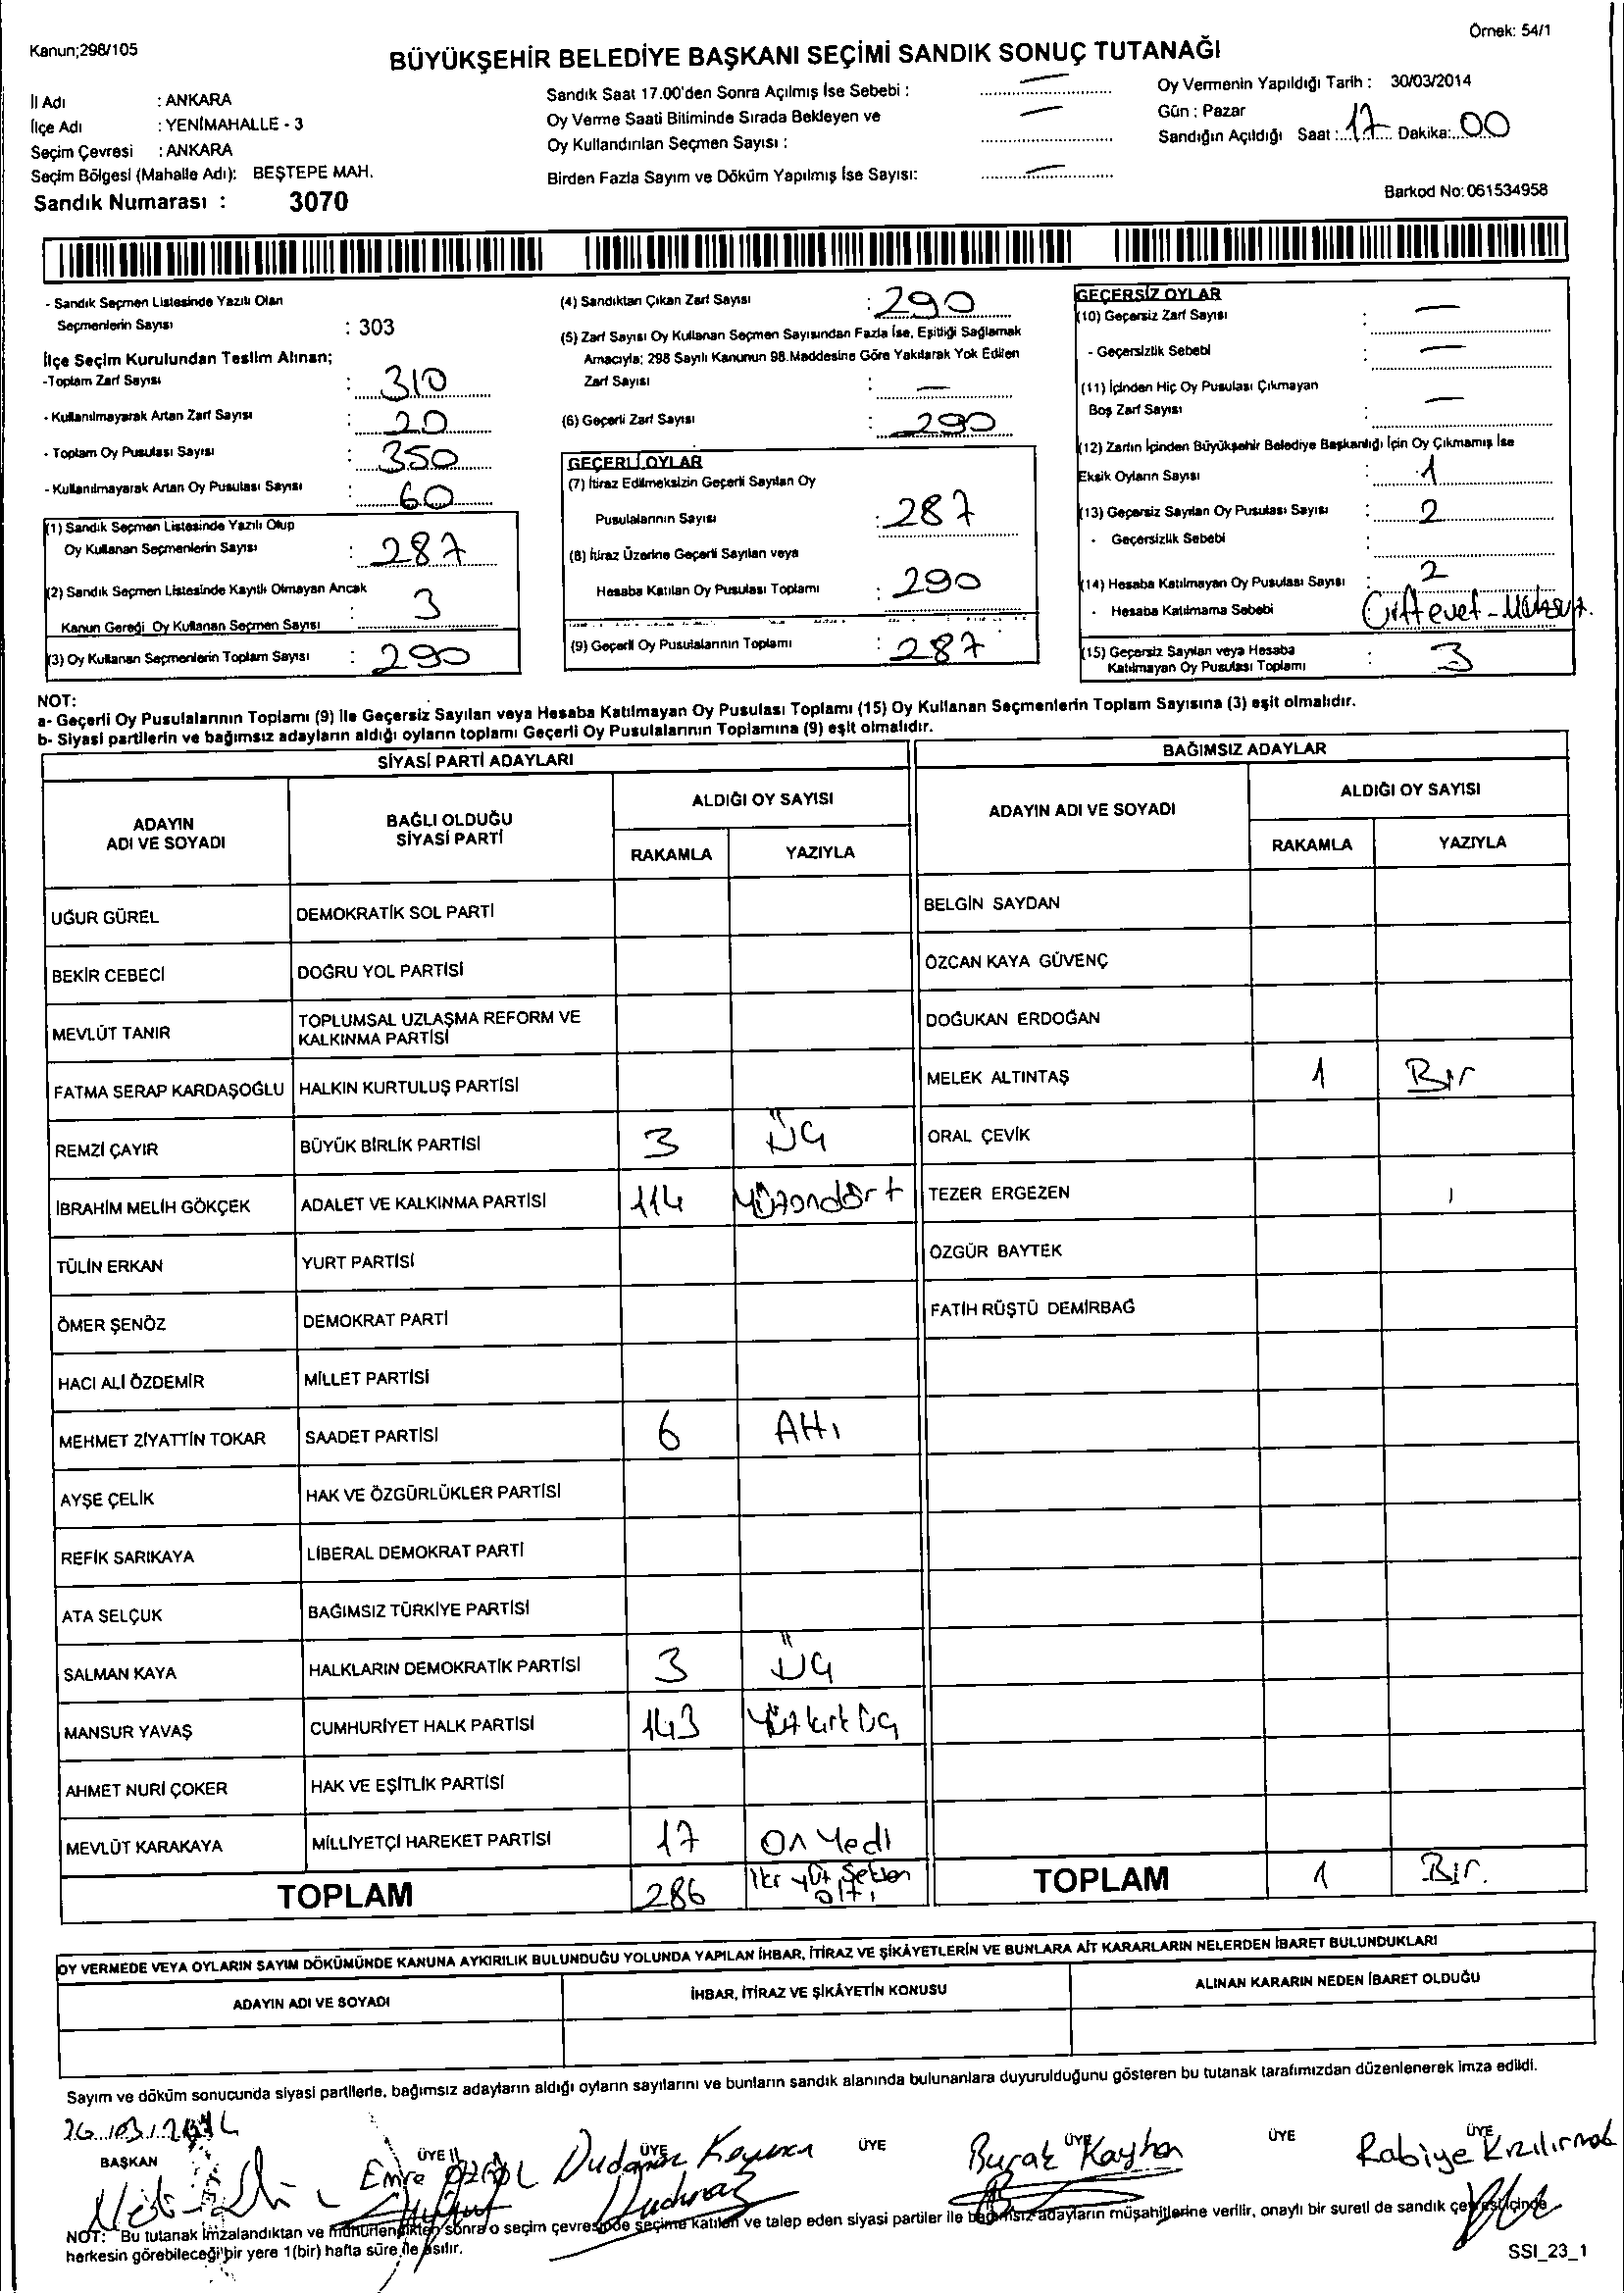 Kanun;298/105
Örnek: 54/1
BÜYÜKŞEHİR BELEDİYE BAŞKANI SEÇİMİ SANDIK SONUÇ TUTANAĞI
İl Adı : ANKARA
İlçe Adı : YENİMAHALLE - 3
Seçim Çevresi : ANKARA
Seçim Bölgesi (Mahalle Adı): BEŞTEPE MAH.
Sandık Numarası : 3070
Sandık Saat 17.00'den Sonra Açılmış İse Sebebi : —
Oy Verme Saati Bitiminde Sırada Bekleyen ve
Oy Kullandırılan Seçmen Sayısı : —
Birden Fazla Sayım ve Döküm Yapılmış İse Sayısı: —
Oy Vermenin Yapıldığı Tarih : 30/03/2014
Gün : Pazar
Sandığın Açıldığı Saat : 17 Dakika: 00
Barkod No: 061534958
- Sandık Seçmen Listesinde Yazılı Olan
Seçmenlerin Sayısı : 303
İlçe Seçim Kurulundan Teslim Alınan;
-Toplam Zarf Sayısı : 310
- Kullanılmayarak Artan Zarf Sayısı : 20
- Toplam Oy Pusulası Sayısı : 350
- Kullanılmayarak Artan Oy Pusulası Sayısı : 60
(1) Sandık Seçmen Listesinde Yazılı Olup
Oy Kullanan Seçmenlerin Sayısı : 287
(2) Sandık Seçmen Listesinde Kayıtlı Olmayan Ancak
Kanun Gereği Oy Kullanan Seçmen Sayısı 3
(3) Oy Kullanan Seçmenlerin Toplam Sayısı : 290
(4) Sandıktan Çıkan Zarf Sayısı : 290
(5) Zarf Sayısı Oy Kullanan Seçmen Sayısından Fazla İse, Eşitliği Sağlamak
Amacıyla; 298 Sayılı Kanunun 98.Maddesine Göre Yakılarak Yok Edilen
Zarf Sayısı : —
(6) Geçerli Zarf Sayısı : 290
GEÇERLİ OYLAR
(7) İtiraz Edilmeksizin Geçerli Sayılan Oy
Pusulalarının Sayısı : 287
(8) İtiraz Üzerine Geçerli Sayılan veya
Hesaba Katılan Oy Pusulası Toplamı : 290
(9) Geçerli Oy Pusulalarının Toplamı : 287
GEÇERSİZ OYLAR
(10) Geçersiz Zarf Sayısı : —
- Geçersizlik Sebebi : —
(11) İçinden Hiç Oy Pusulası Çıkmayan
Boş Zarf Sayısı : —
(12) Zarfın İçinden Büyükşehir Belediye Başkanlığı İçin Oy Çıkmamış İse
Eksik Oyların Sayısı : 1
(13) Geçersiz Sayılan Oy Pusulası Sayısı : 2
- Geçersizlik Sebebi :
(14) Hesaba Katılmayan Oy Pusulası Sayısı : 2
- Hesaba Katılmama Sebebi Çift evet -
(15) Geçersiz Sayılan veya Hesaba
Katılmayan Oy Pusulası Toplamı : 3
NOT:
a- Geçerli Oy Pusulalarının Toplamı (9) ile Geçersiz Sayılan veya Hesaba Katılmayan Oy Pusulası Toplamı (15) Oy Kullanan Seçmenlerin Toplam Sayısına (3) eşit olmalıdır.
b- Siyasi partilerin ve bağımsız adayların aldığı oyların toplamı Geçerli Oy Pusulalarının Toplamına (9) eşit olmalıdır.
SİYASİ PARTİ ADAYLARI
ADAYIN
ADI VE SOYADI
BAĞLI OLDUĞU
SİYASİ PARTİ
ALDIĞI OY SAYISI
RAKAMLA YAZIYLA
UĞUR GÜREL DEMOKRATİK SOL PARTİ
BEKİR CEBECİ DOĞRU YOL PARTİSİ
MEVLÜT TANIR TOPLUMSAL UZLAŞMA REFORM VE
KALKINMA PARTİSİ
FATMA SERAP KARDAŞOĞLU HALKIN KURTULUŞ PARTİSİ
REMZİ ÇAYIR BÜYÜK BİRLİK PARTİSİ 3 Üç
İBRAHİM MELİH GÖKÇEK ADALET VE KALKINMA PARTİSİ 114 Yüzondört
TÜLİN ERKAN YURT PARTİSİ
ÖMER ŞENÖZ DEMOKRAT PARTİ
HACI ALİ ÖZDEMİR MİLLET PARTİSİ
MEHMET ZİYATTİN TOKAR SAADET PARTİSİ 6 Altı
AYŞE ÇELİK HAK VE ÖZGÜRLÜKLER PARTİSİ
REFİK SARIKAYA LİBERAL DEMOKRAT PARTİ
ATA SELÇUK BAĞIMSIZ TÜRKİYE PARTİSİ
SALMAN KAYA HALKLARIN DEMOKRATİK PARTİSİ 3 Üç
MANSUR YAVAŞ CUMHURİYET HALK PARTİSİ 143 Yüz kırk üç
AHMET NURİ ÇOKER HAK VE EŞİTLİK PARTİSİ
MEVLÜT KARAKAYA MİLLİYETÇİ HAREKET PARTİSİ 17 On Yedi
TOPLAM 286 İki yüz seksen
altı
BAĞIMSIZ ADAYLAR
ADAYIN ADI VE SOYADI
ALDIĞI OY SAYISI
RAKAMLA YAZIYLA
BELGİN SAYDAN
ÖZCAN KAYA GÜVENÇ
DOĞUKAN ERDOĞAN
MELEK ALTINTAŞ 1 Bir
ORAL ÇEVİK
TEZER ERGEZEN
ÖZGÜR BAYTEK
FATİH RÜŞTÜ DEMİRBAĞ
TOPLAM 1 Bir.
OY VERMEDE VEYA OYLARIN SAYIM DÖKÜMÜNDE KANUNA AYKIRILIK BULUNDUĞU YOLUNDA YAPILAN İHBAR, İTİRAZ VE ŞİKÂYETLERİN VE BUNLARA AİT KARARLARIN NELERDEN İBARET BULUNDUKLARI
ADAYIN ADI VE SOYADI İHBAR, İTİRAZ VE ŞİKÂYETİN KONUSU ALINAN KARARIN NEDEN İBARET OLDUĞU
Sayım ve döküm sonucunda siyasi partilerle, bağımsız adayların aldığı oyların sayılarını ve bunların sandık alanında bulunanlara duyurulduğunu gösteren bu tutanak tarafımızdan düzenlenerek imza edildi.
BAŞKAN ÜYE ÜYE ÜYE ÜYE ÜYE ÜYE
Emre Burak Kayhan Rabiye Kızılırmak
NOT: Bu tutanak imzalandıktan ve mühürlendikten sonra o seçim çevresinde seçime katılan ve talep eden siyasi partiler ile bağımsız adayların müşahitlerine verilir, onaylı bir sureti de sandık çevresi içinde
herkesin görebileceği bir yere 1(bir) hafta süre ile asılır.
SSI_23_1